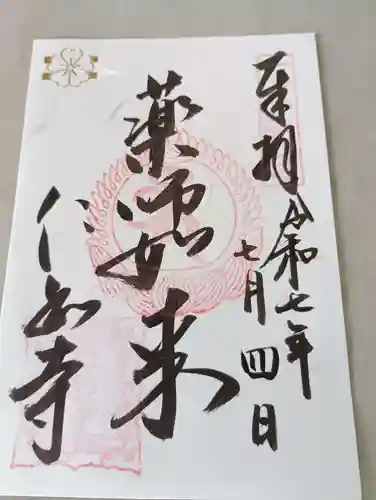 奉拝
令和七年
七月四日
薬師如来
仁和寺